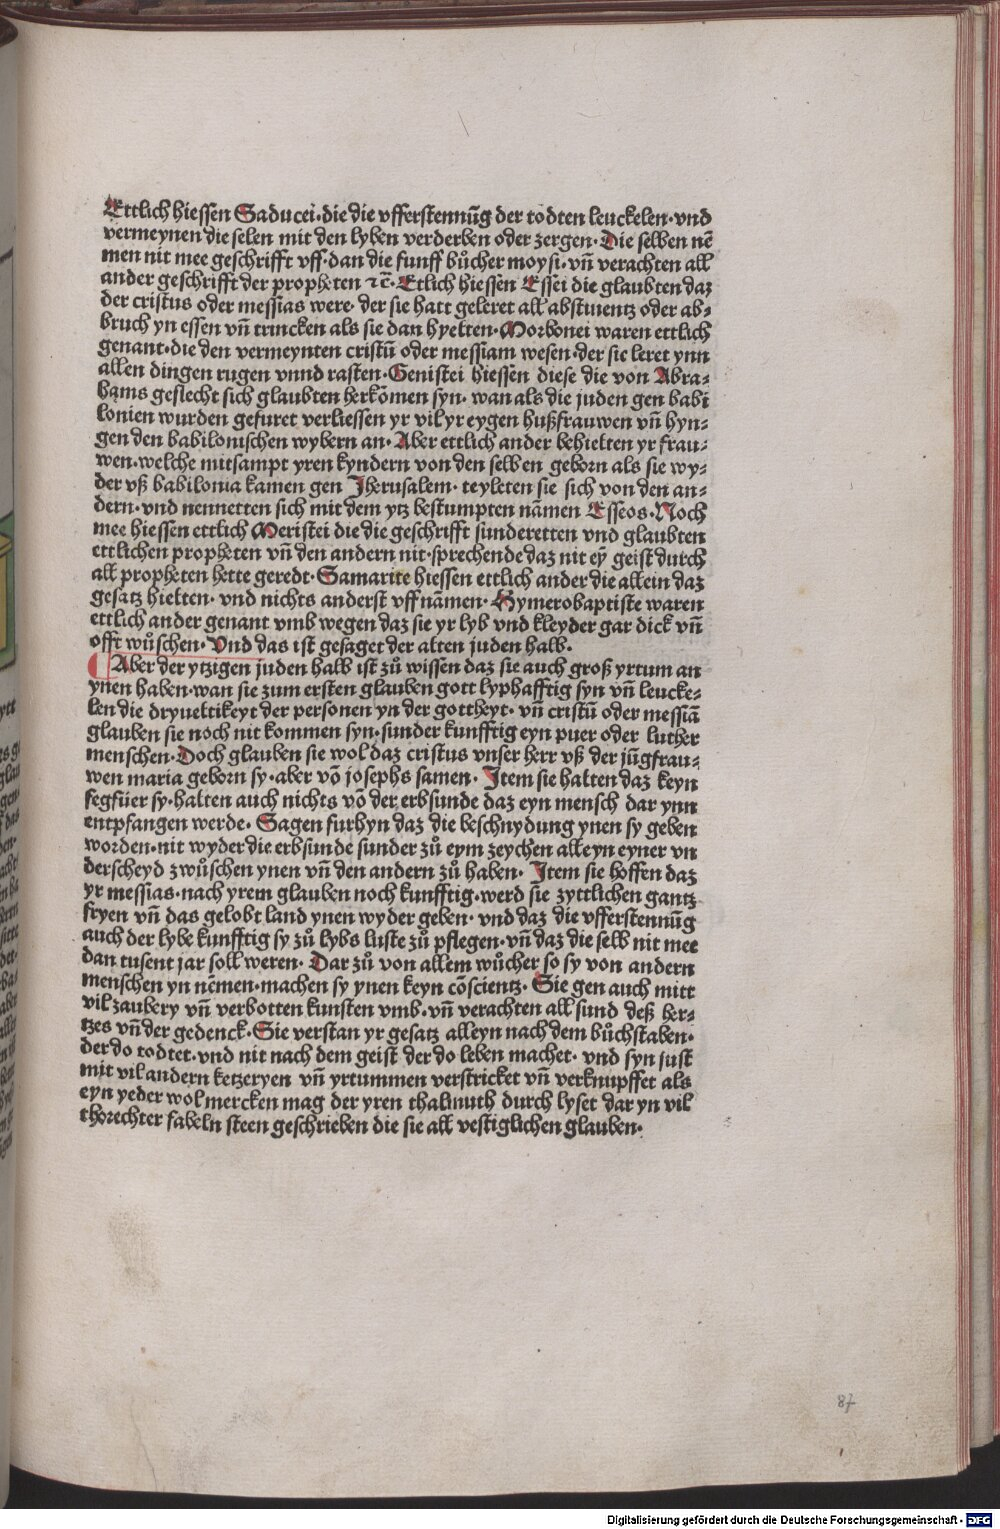 Ettlich hiessen Saducei·die die vfferstennūg der todten leuckelen·vnd
vermeynen die selen mit den lyben verderben oder zergen·Die selben nē
men nit mee geschrifft vff·dan die funff bůcher moysi·vñ verachten all
ander geschrifft der propheten ⁊c̄·Etlich hiessen Essei die glaubten daz
der cristus oder messias were· der sie hatt geleret all abstinentz oder ab⸗
bruch yn essen vñ trincken als sie dan hyelten·Morbonei waren ettlich
genant·die den vermeynten cristū oder messiam wesen·der sie leret ynn
allen dingen rugen vnnd rasten·Genistei hiessen diese die von Abra⸗
hams geslecht sich glaubten herkōmen syn· wan als die juden gen babi
lonien wurden gefuret verliessen yr vil yr eygen hußfrauwen vñ hyn⸗
gen den babilonischen wybern an·Aber ettlich ander behielten yr frau⸗
wen·welche mitsampt yren kyndern von den selben geborn als sie wy⸗
der vß babilonia kamen gen Jherusalem· teyleten sie sich von den an⸗
dern·vnd nennetten sich mit dem ytz bestumpten nāmen Esseos·Noch
mee hiessen ettlich Meristei die die geschrifft sunderetten vnd glaubten
ettlichen propheten vñ den andern nit·sprechende daz nit eȳ geist durch
all propheten hette geredt·Samarite hiessen ettlich ander die allein daz
gesatz hielten· vnd nichts anderst vff nāmen·Hymerobaptiste waren
ettlich ander genant vmb wegen daz sie yr lyb vnd kleyder gar dick vñ
offt wůschen·Vnd das ist gesaget der alten juden halb·
Aber der ytzigen juden halb ist zů wissen daz sie auch groß yrtum an
ynen haben·wan sie zum ersten glauben gott lyphafftig syn vñ leucke⸗
len die dryueltikeyt der personen yn der gottheyt· vñ cristū oder messiā
glauben sie noch nit kommen syn·sunder kunfftig eyn puer oder luther
menschen·Doch glauben sie wol daz cristus vnser herr vß der jūgfrau⸗
wen maria geborn sy·aber vō josephs samen· Item sie halten daz keyn
fegfüer sy·halten auch nichts vō der erbsunde daz eyn mensch dar ynn
entpfangen werde· Sagen furhyn daz die beschnydung ynen sy geben
worden·nit wyder die erbsunde sunder zů eym zeychen alleyn eyner vn
derscheyd zwůschen ynen vñ den andern zů haben· Item sie hoffen daz
yr messias·nach yrem glauben noch kunfftig·werd sie zyttlichen gantz
fryen vñ das gelobt land ynen wyder geben· vnd daz die vfferstennūg
auch der lybe kunfftig sy zů lybs luste zů pflegen·vñ daz die selb nit mee
dan tusent jar soll weren· Dar zů von allem wůcher so sy von andern
menschen yn nēmen·machen sy ynen keyn cōscientz· Sie gen auch mitt
vil zaubery vñ verbotten kunsten vmb·vñ verachten all sund deß her⸗
tzes vñ der gedenck·Sie verstan yr gesatz alleyn nach dem bůchstaben·
der do todtet·vnd nit nach dem geist der do leben machet· vnd syn sust
mit vil andern ketzeryen vñ yrtummen verstricket vñ verknupffet als
eyn yeder wol mercken mag der yren thalmuth durch lyset dar yn vil
thorechter fabeln steen geschrieben die sie all vestiglichen glauben·
87
Digitalisierung gefördert durch die Deutsche Forschungsgemeinschaft - DFG